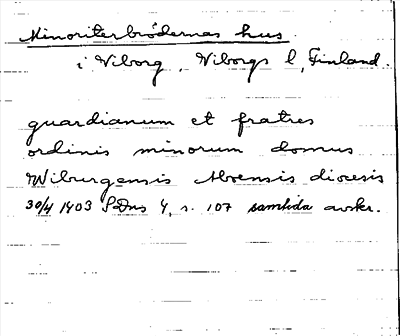 Minoriterbrödernas hus
i Viborg, Viborgs l, Finland.
guardianum et fratres
ordinis minorum domus
Wiburgensis Aboensis diocesis
30/4 1403 SDns 4, s. 107 samtida avskr.